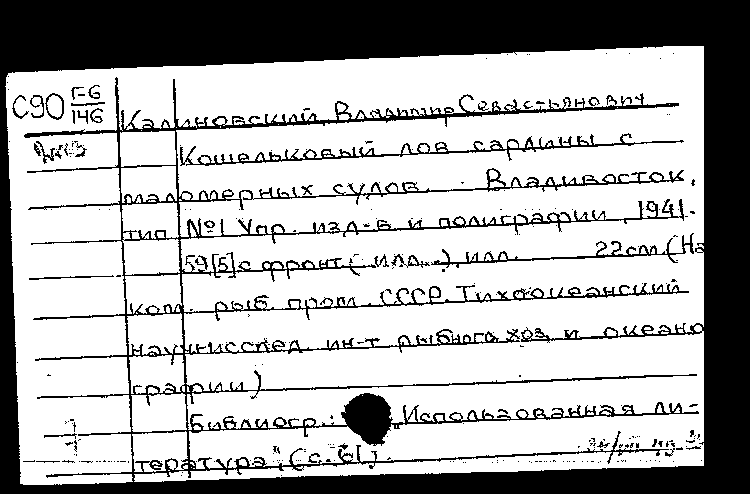 С90 Г-6/146
Калиновский, Владимир Севастьянович
Кошельковый лов сардины с
маломерных судов. Владивосток,
тип №1 Упр. изд-в и полиграфии, 1941.
59[5]с фронт (илл.), илл. 22см. (На
ком. рыб. пром. СССР. Тихоокеанский
научн исслед. ин-т рыбного хоз. и океано
графии)
Библиогр.: „Использованная ли-
тература", (с. 61).